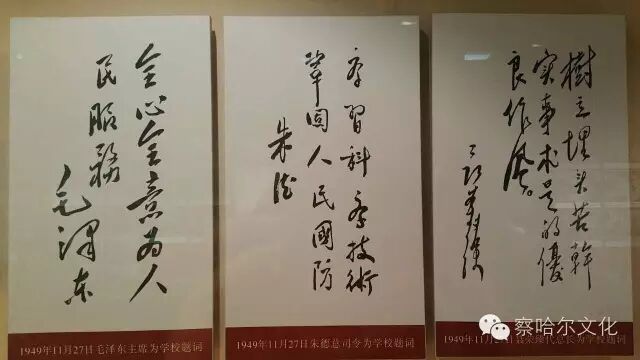 全心全意为人
民服務
毛澤东
1949年11月27日毛泽东主席为学校题词
学習科学技術
鞏固人民國防
朱德
1949年11月27日朱德总司令为学校题词
樹立埋头苦幹
实事求是的優
良作風。
1949年11月 日聂荣臻代总长为学校题词
察哈尔文化